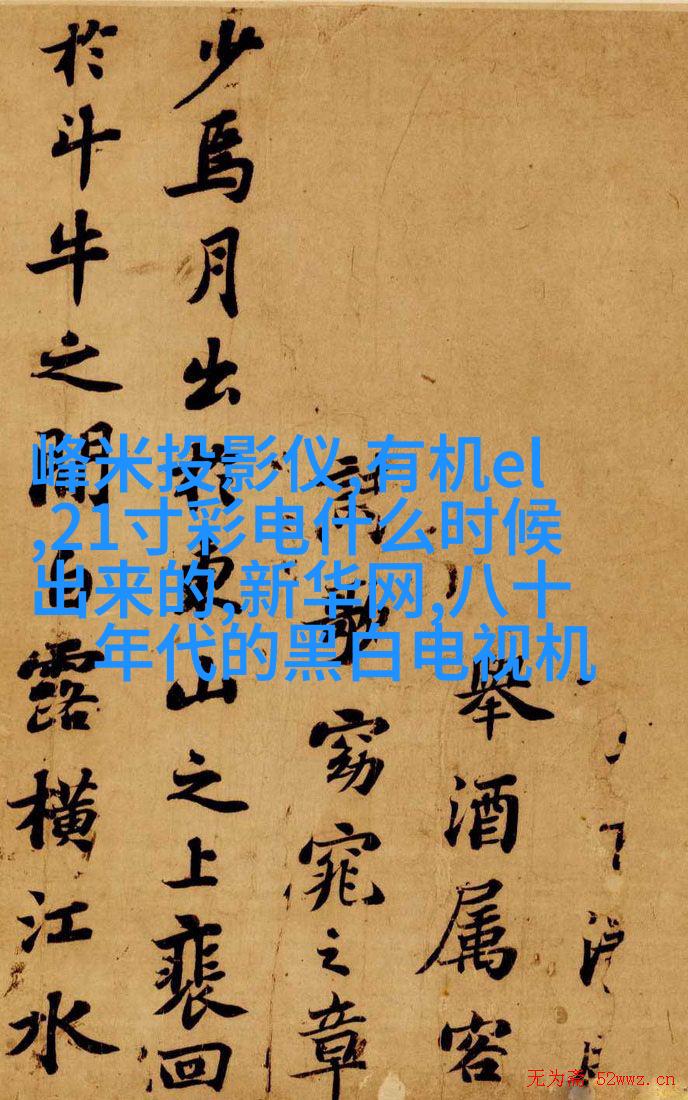 峰米投影仪,有机el
,21寸彩电什么时候
出来的,新华网,八十
年代的黑白电视机
舉酒属客
詩歌窈窕之章
少焉月出於東山之上裴回
於斗牛之間白露橫江水
无为斋 52wwz.cn